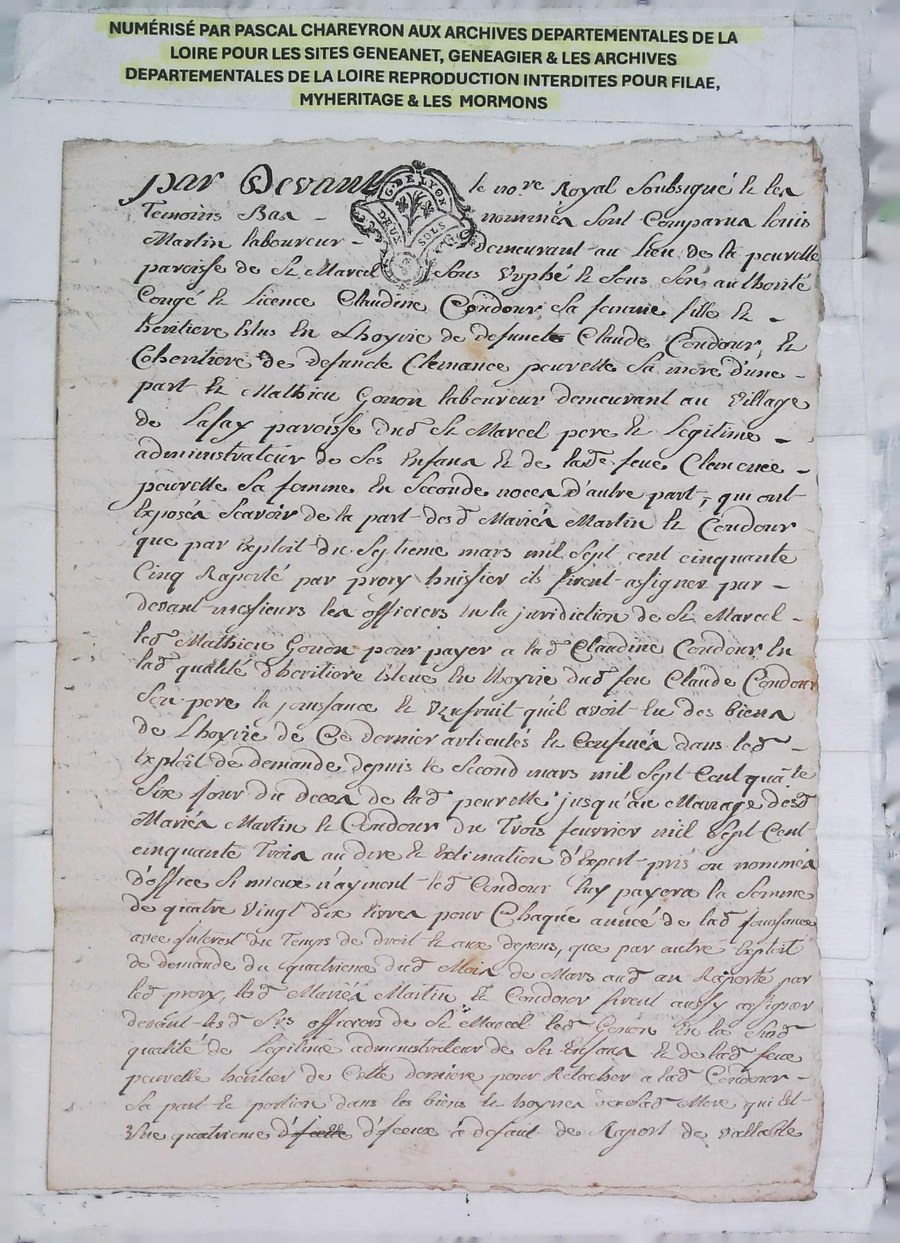 NUMÉRISÉ PAR PASCAL CHAREYRON AUX ARCHIVES DEPARTEMENTALES DE LA
LOIRE POUR LES SITES GENEANET, GENEAGIER & LES ARCHIVES
DEPARTEMENTALES DE LA LOIRE REPRODUCTION INTERDITES POUR FILAE,
MYHERITAGE & LES MORMONS
par Devant le nore Royal Soubsigné & les
G. DE LYON
DEUX SOLS
Temoins Bas - nommés sont Comparus louis
Martin laboureur - demeurant au Lieu de la pouvelle
paroisse de St Marcel sous Urphé & sous son authorité
Congé & Licence Claudine Condour sa femme fille & -
heritiere Eslue En Lhoyrie de defunct Claude Condour, &
Coheritiere de defuncte Clemance peuvelle sa mere d'une -
part & Mathieu Gonon laboureur demeurant au Village
de Lafay paroisse dud St Marcel pere & Legitime -
administrateur de ses Enfans & de lade feue Clemence -
peuvelle sa femme En seconde noces d'autre part, qui ont
Exposés scavoir de la part desd Mariés Martin & Condour
que par Exploit du septieme mars mil sept cent cinquante
Cinq Raporté par prory huissier ils firent assigner par -
devant messieurs les officiers En la juridiction de St Marcel -
led Mathieu Gonon pour payer a lad Claudine Condour En
lad qualité d'heritiere Esleue En Lhoyrie dud feu Claude Condour
son pere la jouissance & Uzufruit qu'il avoit Eu des biens
de Lhoyrie de Ce dernier articulés & Confinés dans led -
Exploit de demande depuis le second mars mil sept Cent quate
Six jour du deces de lad peuvelle jusqu'au Mariage desd
Mariés Martin & Condour du Trois feuvrier mil sept Cent
cinquante Trois au dire & Extimation d'Expert pris ou nommés
d'office si mieux n'aymont led Condour luy payera la somme
de quatre vingt dix livres pour Chaque année de lad jouissance
avec interest du Temps de droit & aux depens, que par autre Exploit
de demande du quatrieme dud Mois de Mars aud an Raporté par
led prory, lesd Mariés Martin & Condour firent aussy assigner
devant lesd Srs officiers de St Marcel led Gonon En la susd
qualité de Legitime administrateur de ses Enfans & de lad feue
peuvelle heritier de Cette derniere pour Relacher a lad Condour -
sa part & portion dans les biens & hoyries de sad Mere qui Est
Une quatrieme d'iceux a defaut de Raport de vallable